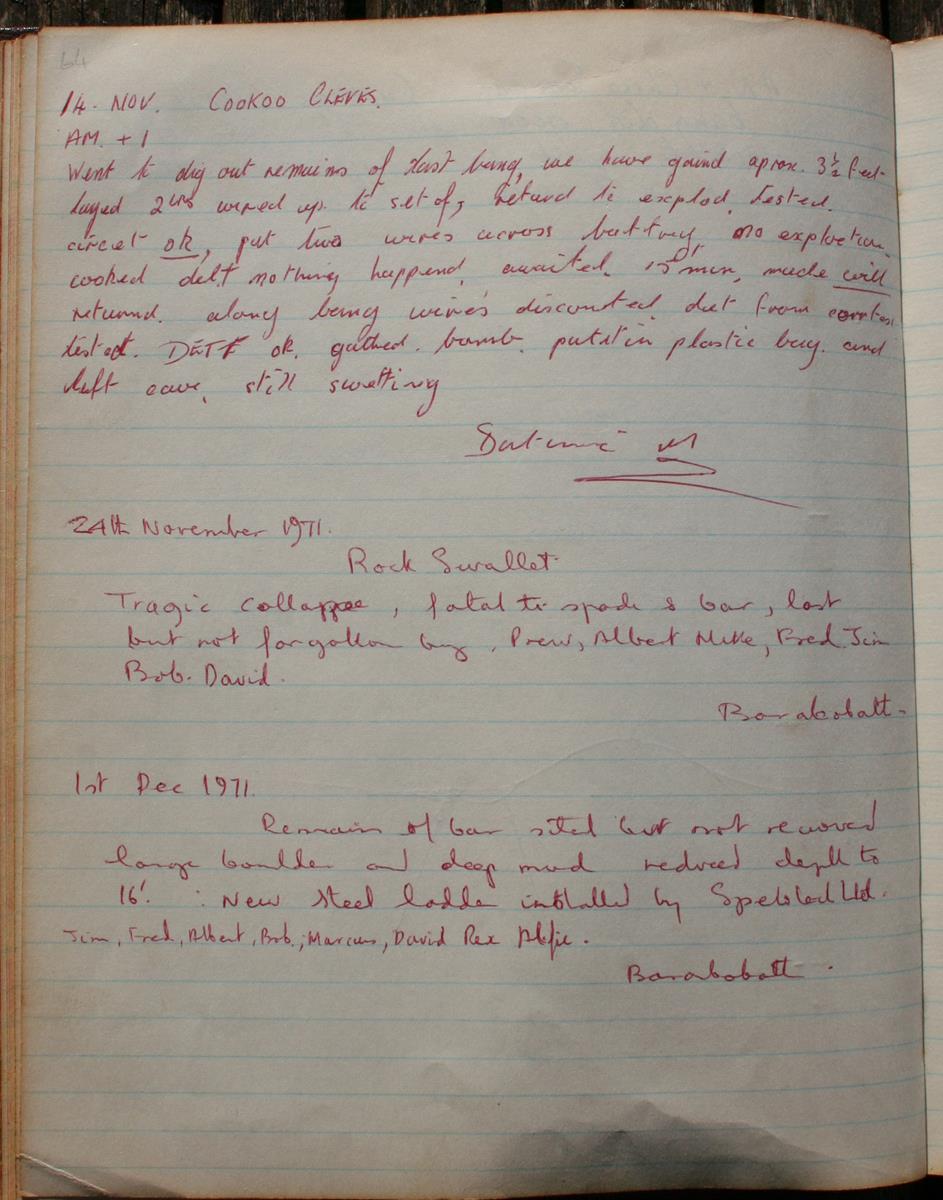 64
14. NOV. COOKOO CLEVES.
AM. + 1
Went to dig out remains of last bang, we have gaind aprox. 3½ feet
layed 2 wired up. to set of, returd to explod. tested.
circet ok, put two wires across battry, no explotion,
cooked det nothing happend. awaited. 15 min, made will
returnd. along being wires disconted. det from
tested. DETT ok. gathed. bomb. put it in plastic bag. and
left cave, still swetting
24th November 1971.
Rock Swallet
Tragic collapse, fatal to spade & bar, lost
but not forgotten by, Prew, Albert Mike, Fred. Jim
Bob. David.
Barabobatt.
1st Dec 1971.
Remains of bar sited but not recovered
large boulder and deep mud reduced depth to
16'. : New steel ladder installed by Speloled Ltd.
Jim, Fred, Albert, Bob, Marcus, David Rex Alfie.
Barabobatt.